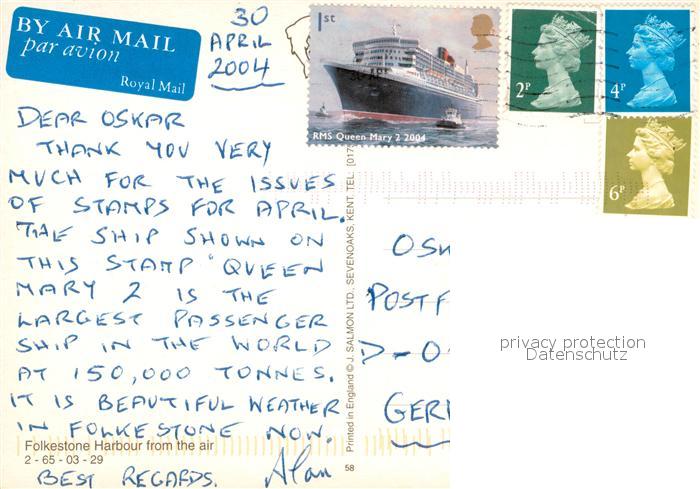 BY AIR MAIL
par avion
Royal Mail
30
APRIL
2004
1st
RMS Queen Mary 2 2004
2P
4P
6P
DEAR OSKAR
THANK YOU VERY
MUCH FOR THE ISSUES
OF STAMPS FOR APRIL.
THE SHIP SHOWN ON
THIS STAMP "QUEEN
MARY 2 IS THE
LARGEST PASSENGER
SHIP IN THE WORLD
AT 150,000 TONNES.
IT IS BEAUTIFUL WEATHER
IN FOLKESTONE NOW.
Folkestone Harbour from the air
2 - 65 - 03 - 29
BEST REGARDS. Alan
58
Printed in England © J. SALMON LTD., SEVENOAKS, KENT. TEL: (017
OSK
POSTF
D-0
GER
privacy protection
Datenschutz